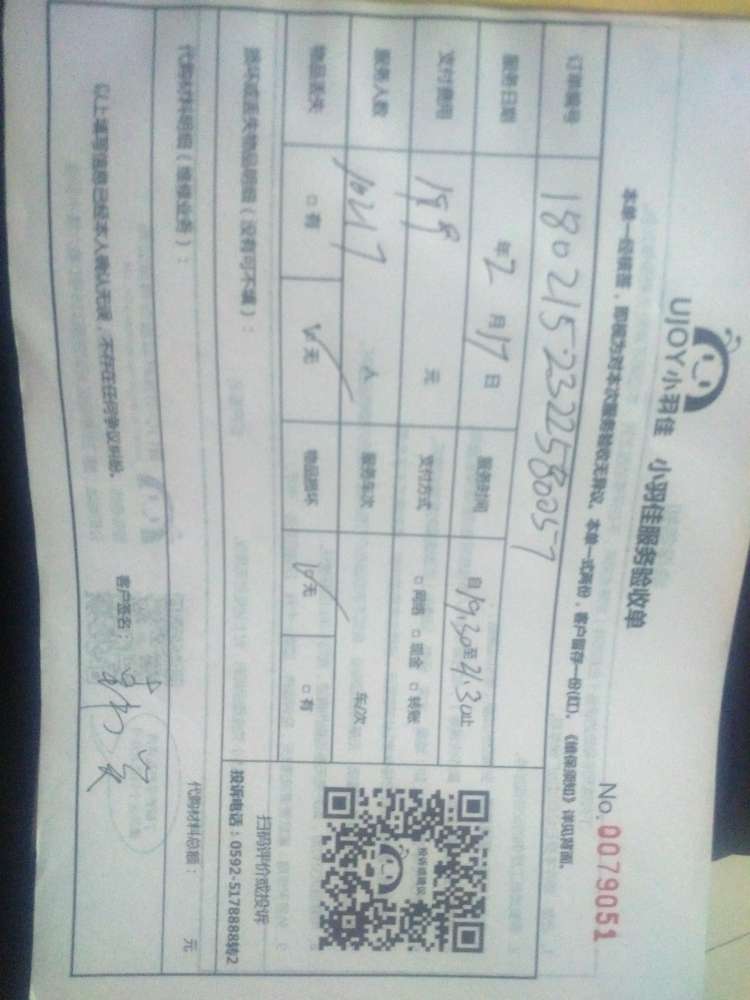 UJOY小羽佳 小羽佳服务验收单
No. 0079051
本单一经签署，即视为对本次服务验收无异议。本单一式两份，客户留存一份(红)。《维保须知》详见背面。
订单编号 1802152322580057
服务日期 年 2 月 17 日 服务时间 自 19:30 至 21:30 止
支付费用 元 支付方式 □ 网络 □ 现金 □ 转账
服务人数 10217 人 服务车次 车/次
物品丢失 □ 有 ☑ 无 物品损坏 ☑ 无 □ 有
投诉或建议
扫码评价或投诉
投诉电话：0592-5178888转2
损坏或丢失物品明细（没有可不填）：
代购材料明细（维修业务）：
代购材料总额： 元
以上填写信息已经本人确认无误，不存在任何争议纠纷。
客户签名：